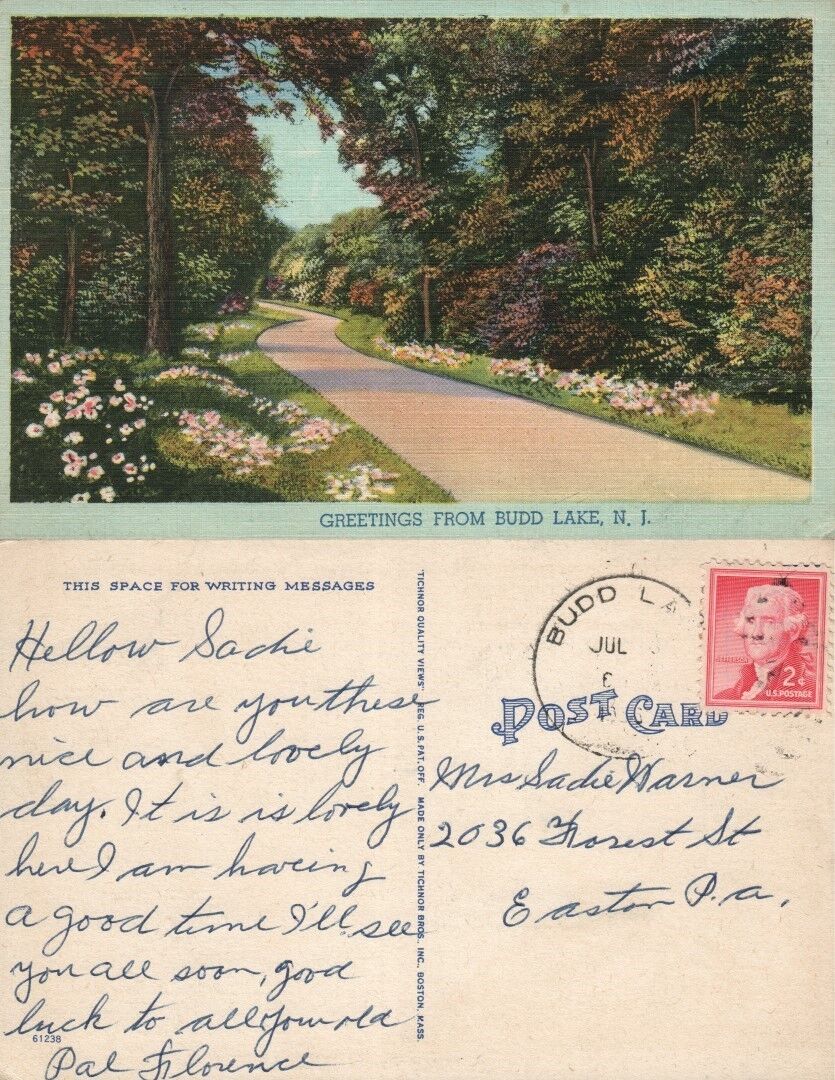 GREETINGS FROM BUDD LAKE, N. J.
THIS SPACE FOR WRITING MESSAGES
Hellow Sadie
how are you these
nice and lovely
day. It is is lovely
here I am having
a good time I'll see
you all soon, good
luck to all your old
Pal Florence
61238
"TICHNOR QUALITY VIEWS," REG. U.S. PAT. OFF. MADE ONLY BY TICHNOR BROS., INC., BOSTON, MASS.
BUDD LA
JUL
JEFFERSON
2¢
U.S. POSTAGE
POST CARD
Mrs Sadie Warner
2036 Forest St
Easton P.a.